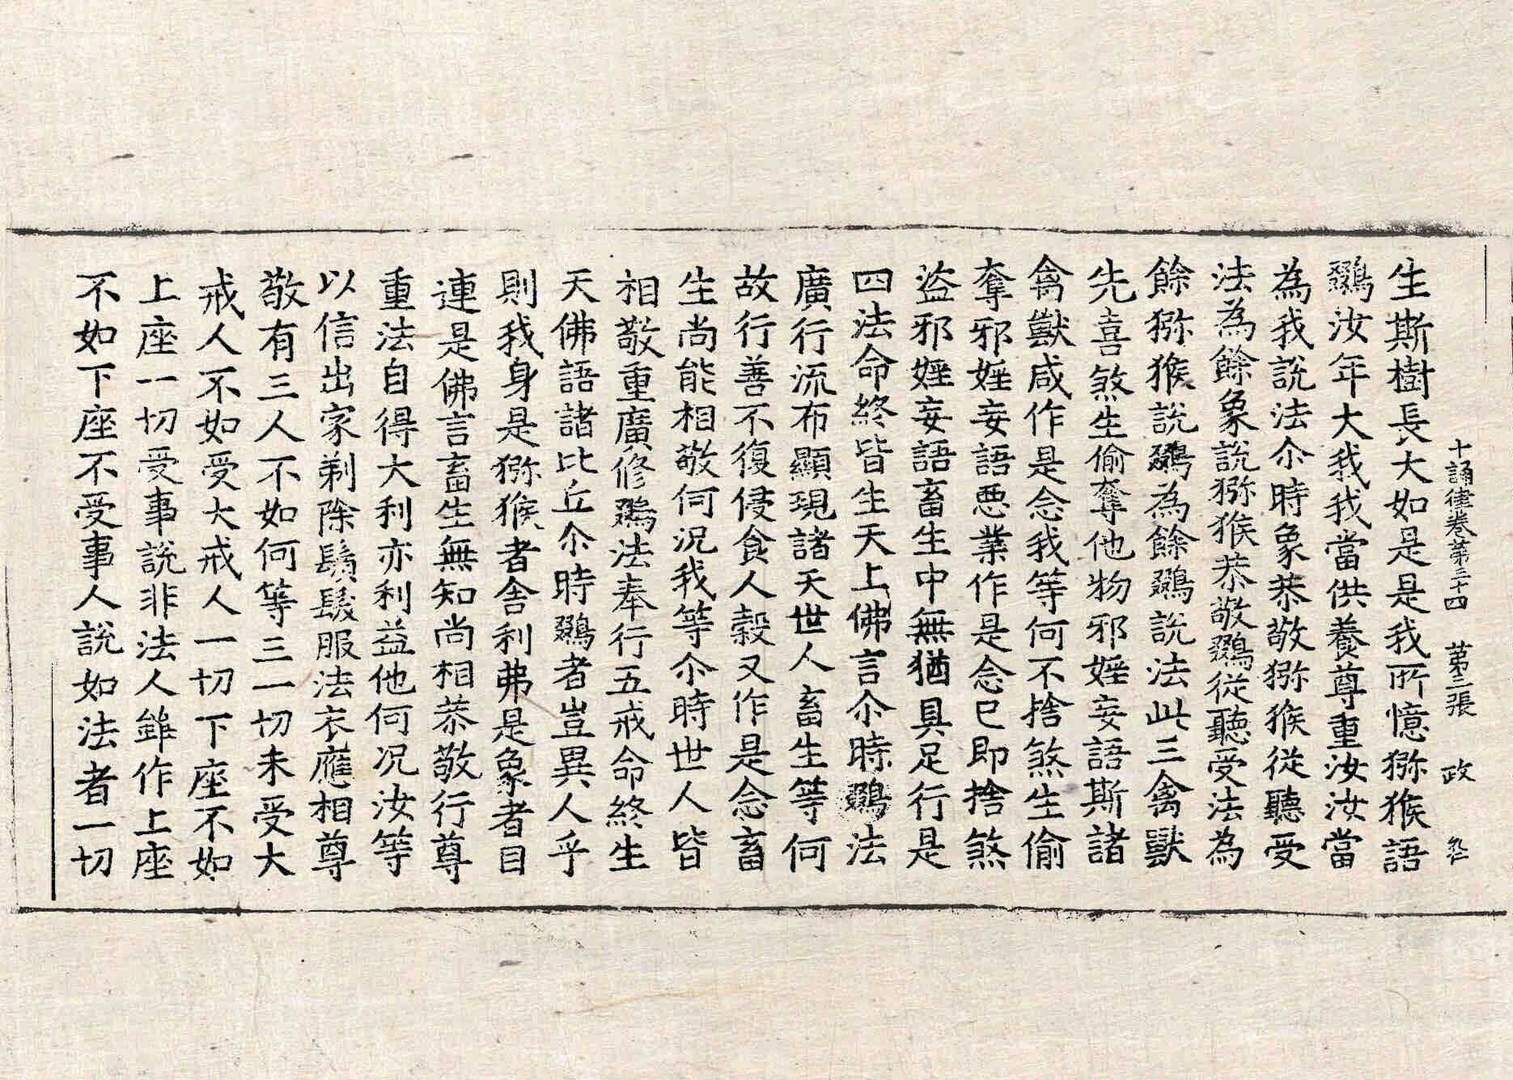 十誦律卷第三十四 第二張 政
生斯樹長大如是是我所憶獼猴語
鵽汝年大我我當供養尊重汝汝當
為我說法尒時象恭敬獼猴從聽受
法為餘象說獼猴恭敬鵽從聽受法為
餘獼猴說鵽為餘鵽說法此三禽獸
先喜煞生偷奪他物邪婬妄語斯諸
禽獸咸作是念我等何不捨煞生偷
奪邪婬妄語惡業作是念已即捨煞
盜邪婬妄語畜生中無猶具足行是
四法命終皆生天上佛言尒時鵽法
廣行流布顯現諸天世人畜生等何
故行善不復侵食人穀又作是念畜
生尚能相敬何況我等尒時世人皆
相敬重廣修鵽法奉行五戒命終生
天佛語諸比丘尒時鵽者豈異人乎
則我身是獼猴者舍利弗是象者目
連是佛言畜生無知尚相恭敬行尊
重法自得大利亦利益他何況汝等
以信出家剃除鬚髮服法衣應相尊
敬有三人不如何等三一切未受大
戒人不如受大戒人一切下座不如
上座一切受事說非法人雖作上座
不如下座不受事人說如法者一切